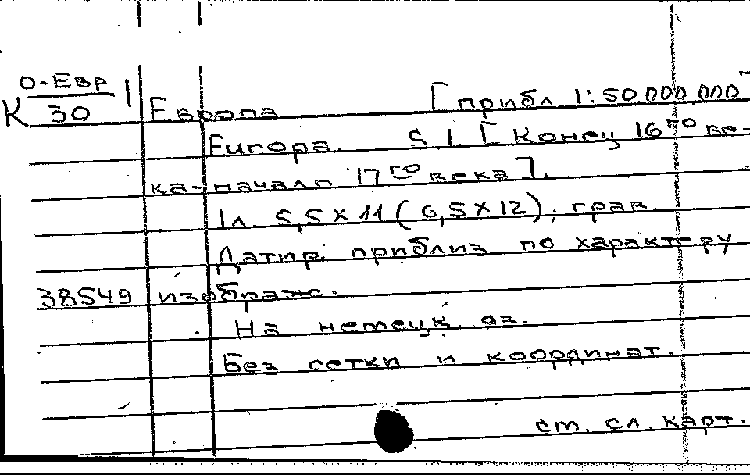 К О-Евр 1
30
Европа [прибл 1:50 000 000
Europa. S. l. [Конец 16го ве-
ка-начало 17го века].
1л. 5,5х11 (6,5х12), грав
Датир. приблиз по характеру
38549 изображ.
На немецк. яз.
Без сетки и координат.
ст. сл. карт.